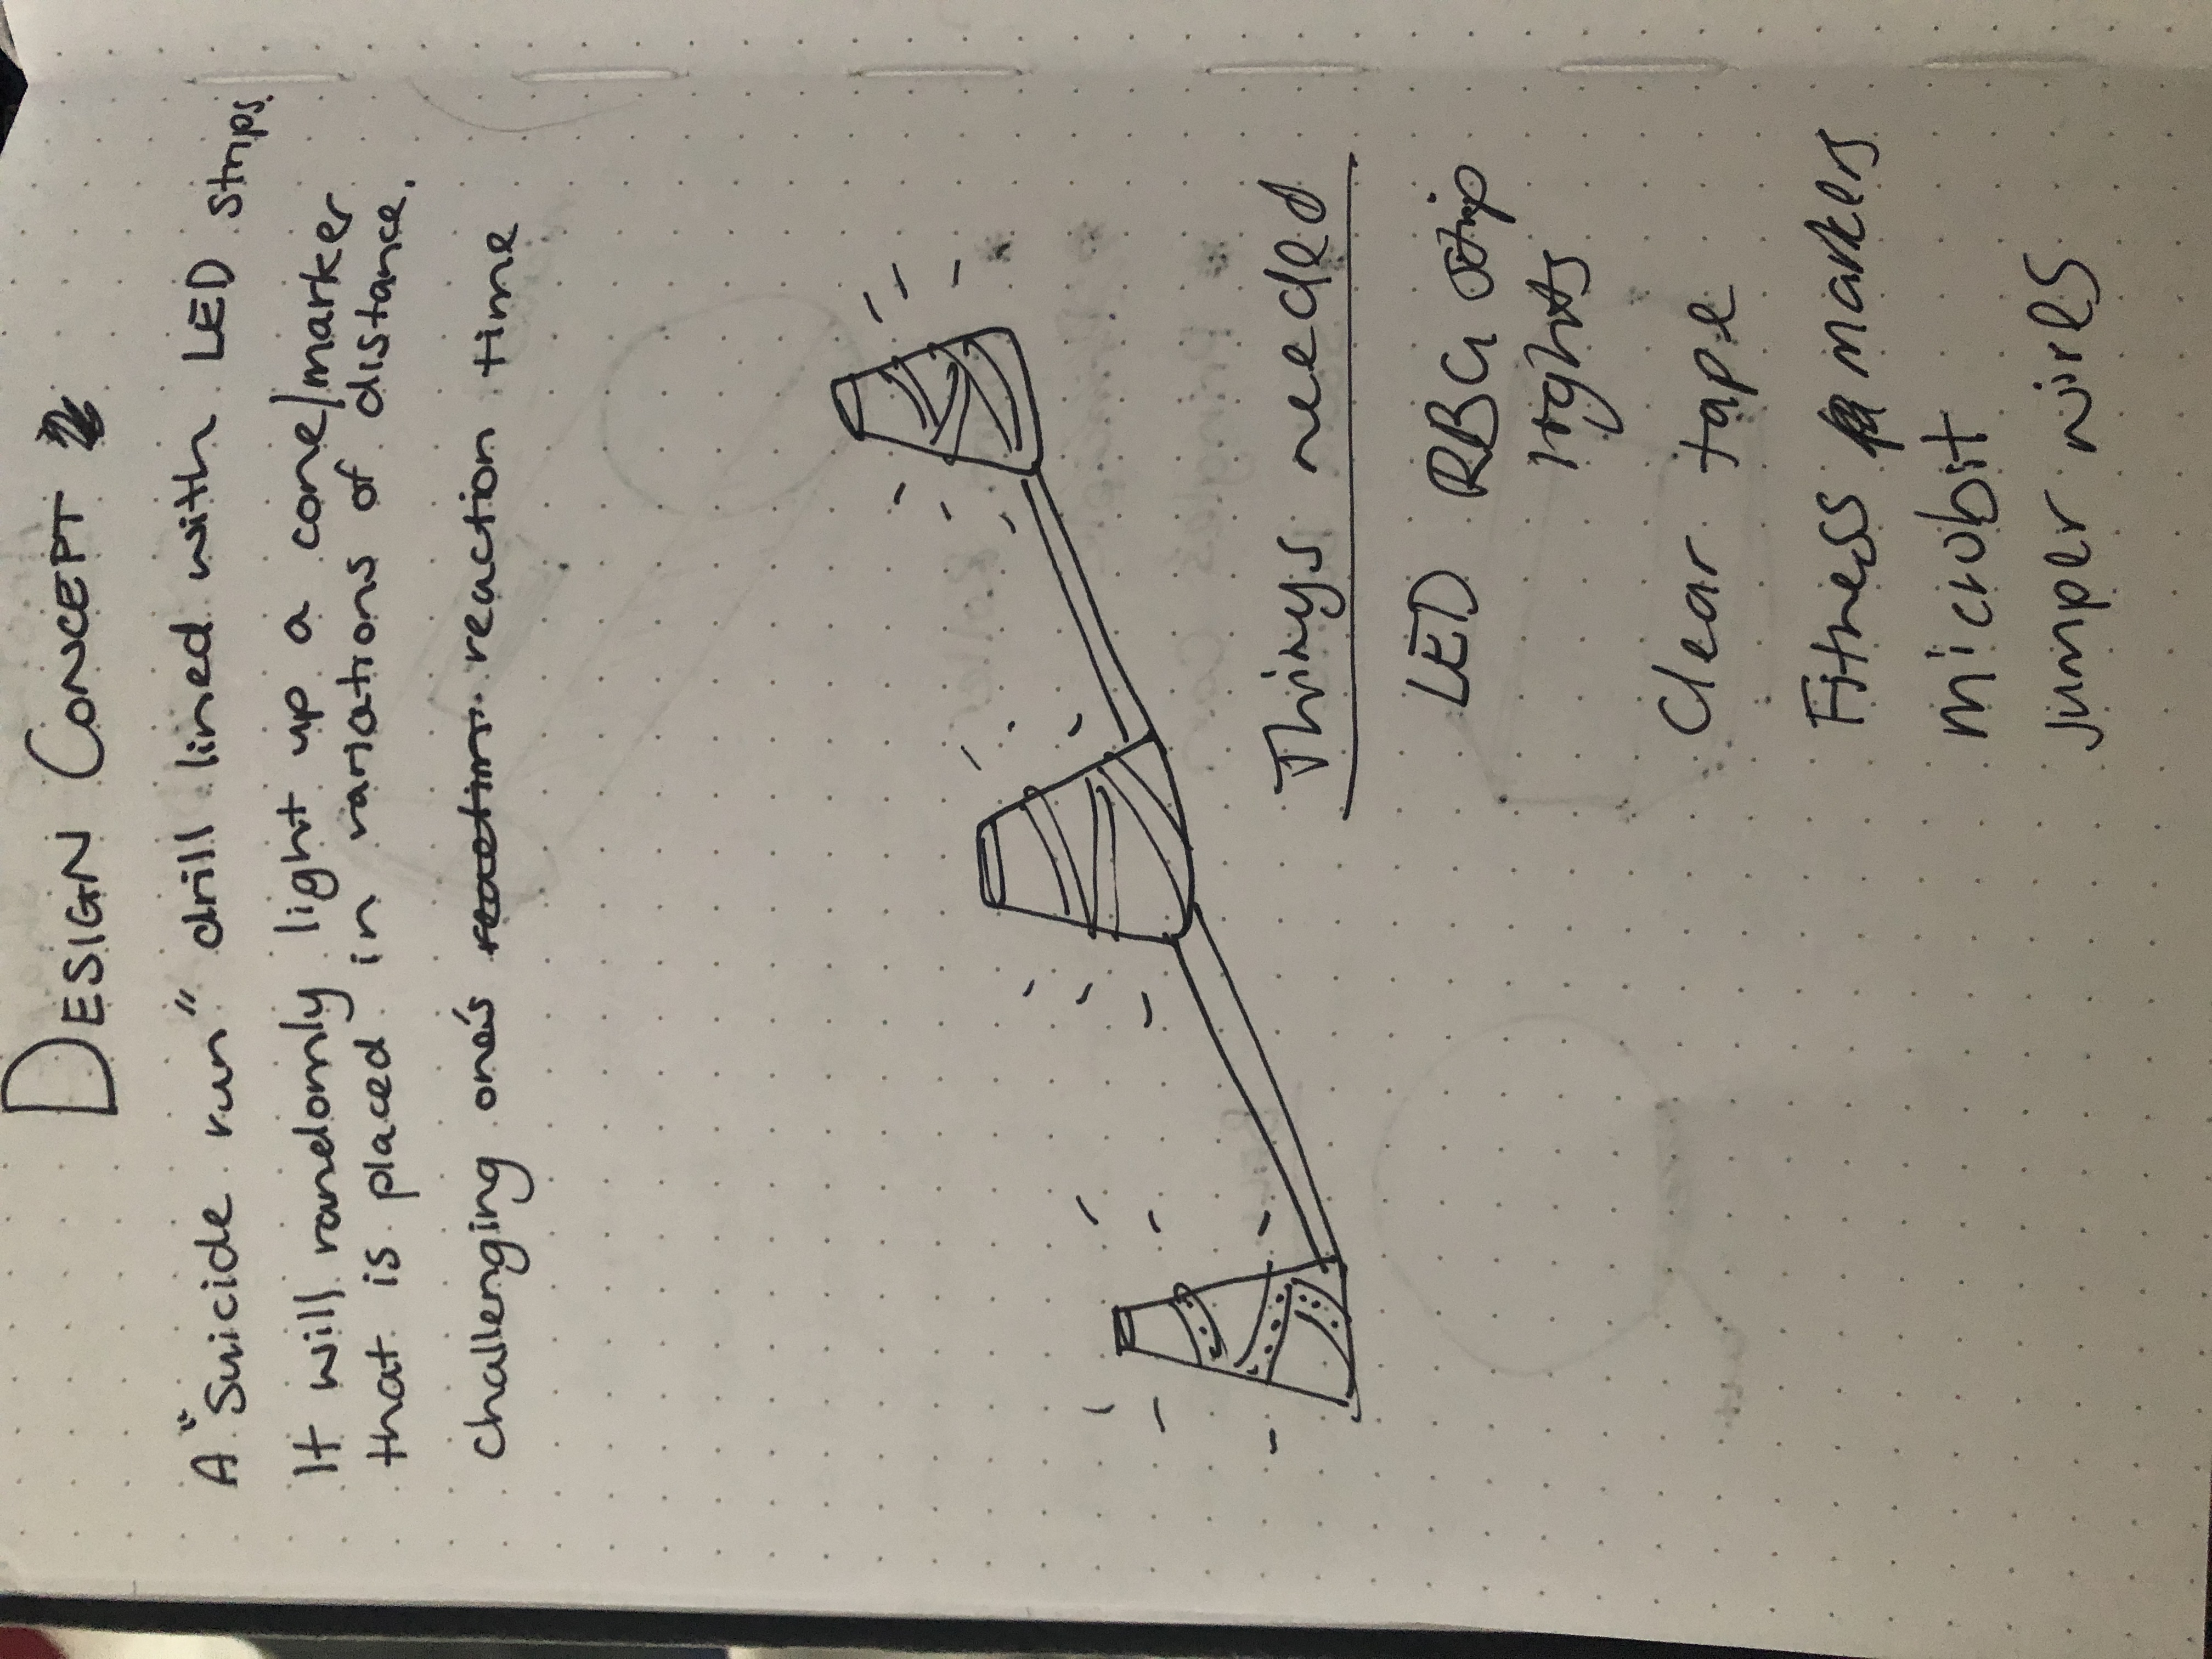 DESIGN CONCEPT
A "Suicide run" drill lined with LED strips.
It will randomly light up a cone/marker
that is placed in variations of distance.
Challenging one's reaction time
Things needed
LED RBG strip
lights
Clear tape
Fitness markers
microbit
jumper wires